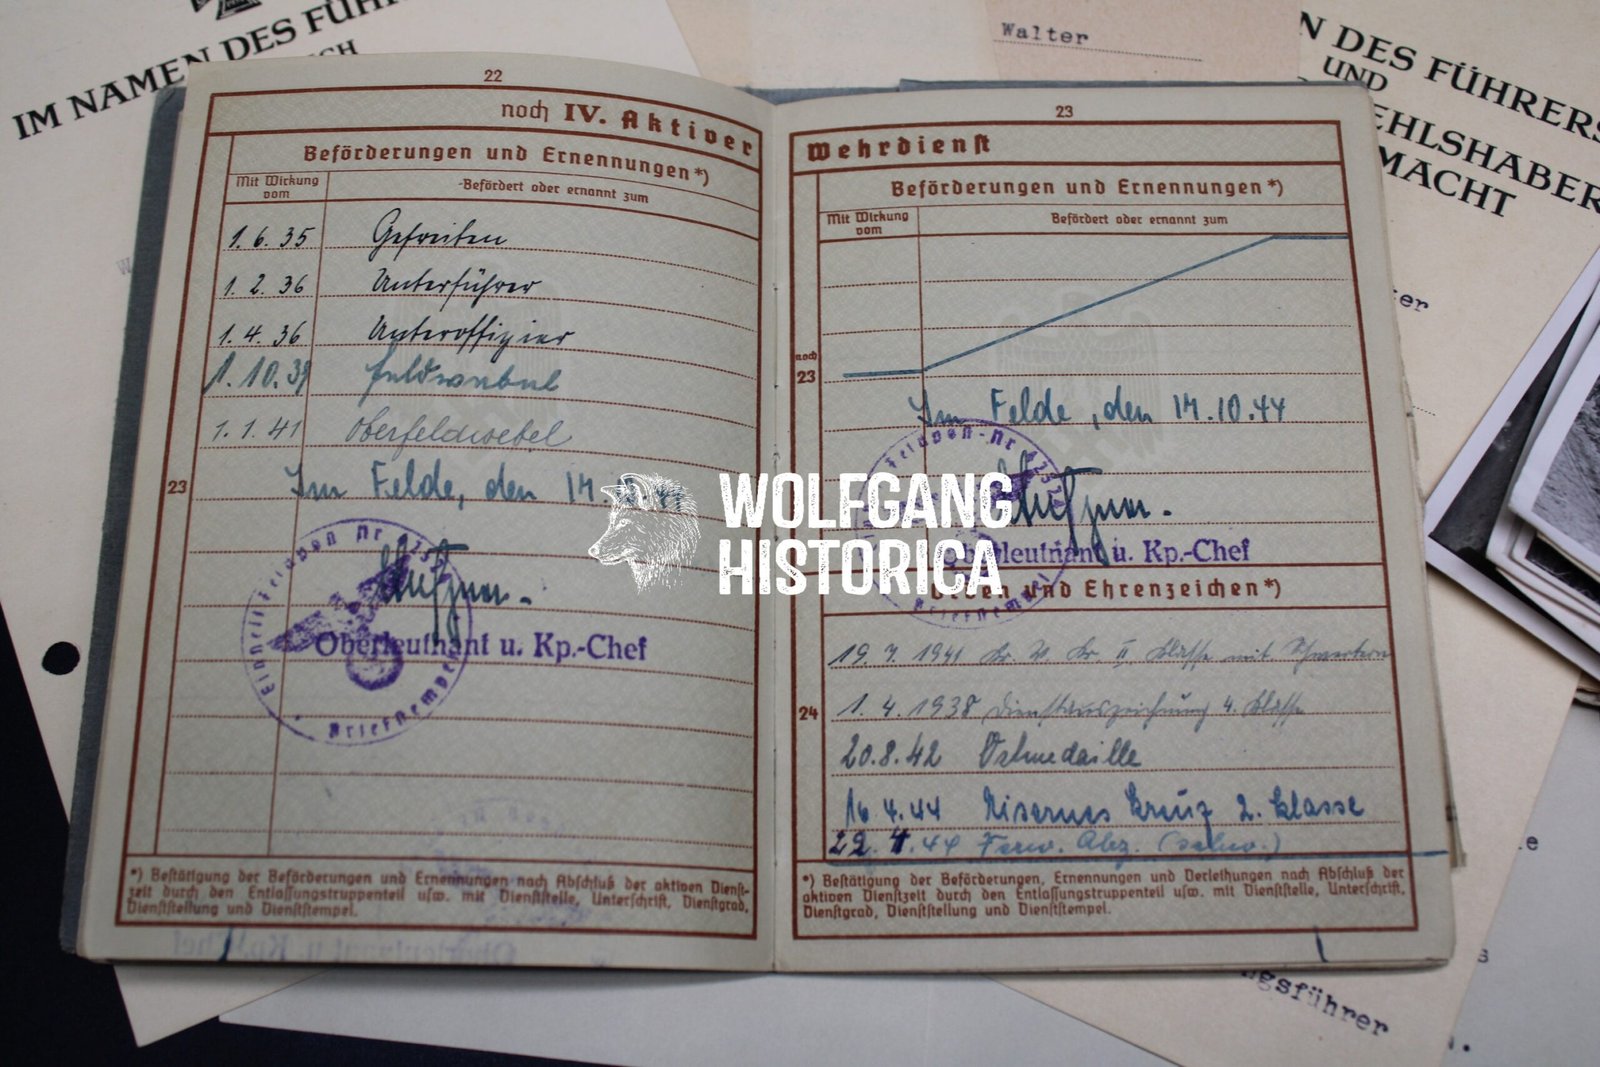 IM NAMEN DES FÜHR
ICH
Walter
N DES FÜHRERS
UND
EHLSHABER
MACHT
ter
22
noch IV. Aktiver
Beförderungen und Ernennungen*)
Mit Wirkung vom
Befördert oder ernannt zum
1.6.35 Gefreiten
1.2.36 Unterführer
1.4.36 Unteroffizier
1.10.39 Feldwebel
1.1.41 Oberfeldwebel
23
Im Felde, den 14.
Einheit Feldpost Nr
Oberleutnant u. Kp.-Chef
Briefstempel
*) Bestätigung der Beförderungen und Ernennungen nach Abschluß der aktiven Dienst-
zeit durch den Entlassungstruppenteil usw. mit Dienststelle, Unterschrift, Dienstgrad,
Dienststellung und Dienststempel.
23
Wehrdienst
Beförderungen und Ernennungen*)
Mit Wirkung vom
Befördert oder ernannt zum
noch
23
Im Felde, den 14.10.44
Feldpost-Nr
Oberleutnant u. Kp.-Chef
Briefstempel
Orden und Ehrenzeichen*)
19.7.1941 Kr. V. Kr. II. Klasse mit Schwertern
24
1.4.1938 Dienstauszeichnung 4. Klasse
20.8.42 Ostmedaille
16.4.44 Eisernes Kreuz 2. Klasse
22.4.44 Verw. Abz. (schw.)
*) Bestätigung der Beförderungen, Ernennungen und Verleihungen nach Abschluß der
aktiven Dienstzeit durch den Entlassungstruppenteil usw. mit Dienststelle, Unterschrift,
Dienstgrad, Dienststellung und Dienststempel.
WOLFGANG
HISTORICA
ngsführer